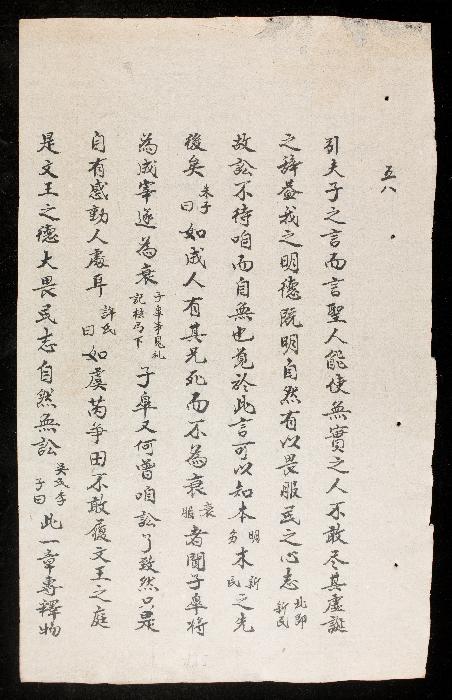 五八
引夫子之言而言聖人能使無實之人不敢尽其虚誕
之辞盖我之明德既明自然有以畏服民之心志此即新民
故訟不待聴而自無也覌於此言可以知本明明末新民之先
後矣朱子曰如成人有其兄死而不為衰衰服者聞子皐将
為成宰遂為衰子皐事見礼記檀弓下子皐又何曾聴訟了致然只是
自有感動人處耳許氏曰如虞芮争田不敢履文王之庭
是文王之德大畏民志自然無訟吴氏季子曰此一章專釋物